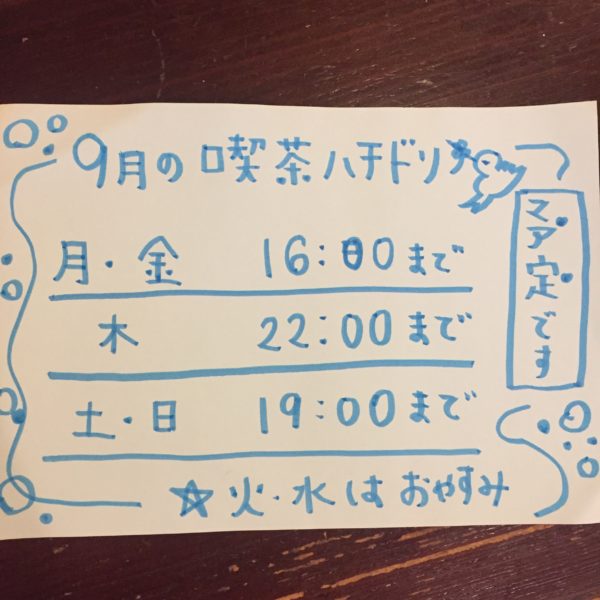 9月の喫茶ハチドリ
月・金 16:00まで
木 22:00まで
土・日 19:00まで
☆火・水はおやすみ
予定です